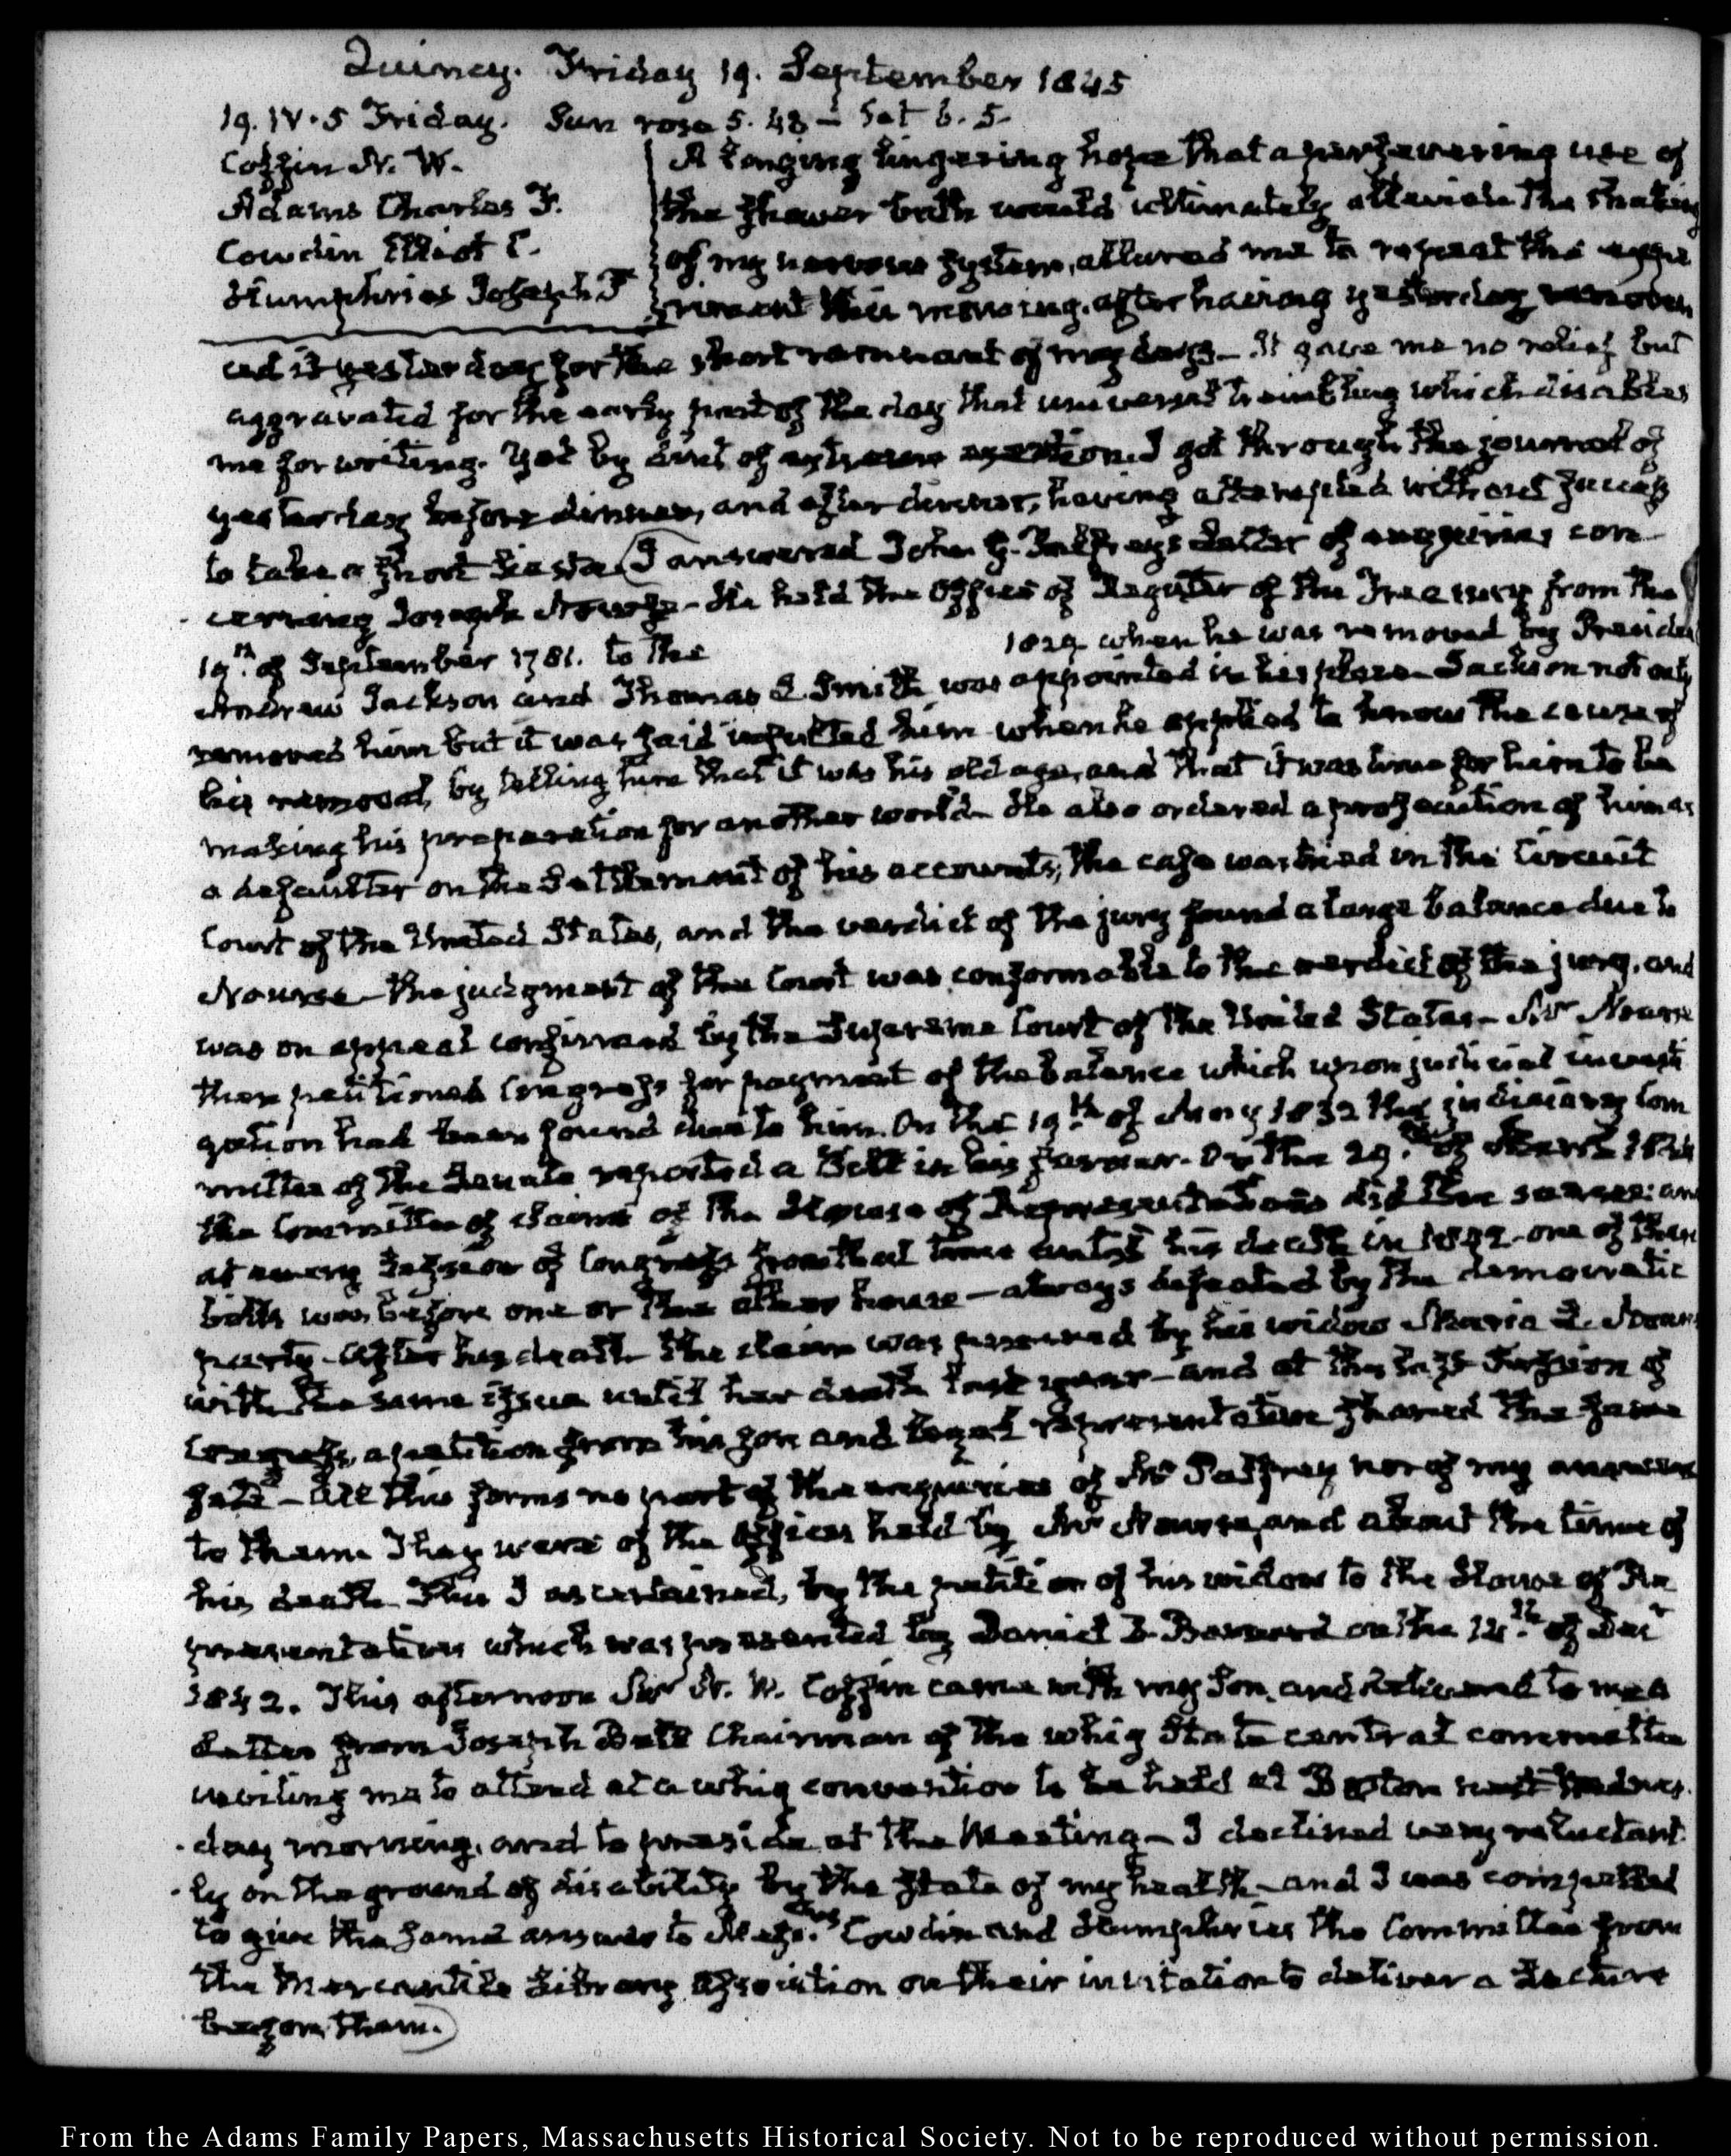 Quincy. Friday 19. September 1845
19. IV. 5 Friday. Sun rose 5. 48 – Set 6. 5.
Coffin N. W.
Adams Charles F.
Cowdin Elliot C.
Humphries Joseph F
A longing lingering hope that a persevering use of
the shower bath would ultimately alleviate the shaking
of my nervous system, allured me to repeat the expe
riment this morning, after having yesterday renoun
ced it yesterday for the short remnant of my days – It gave me no relief but
aggravated for the early part of the day that universal trembling which disables
me for writing. Yet by dint of extreme exertion I got through the journal of
yesterday before dinner, and after dinner, having attempted without success
to take a short siesta (I answered John G. Palfrey's Letter of enquiries con
cerning Joseph Nourse – He held the Office of Register of the Treasury from the
19th. of September 1781. to the 1829 when he was removed by President
Andrew Jackson and Thomas L Smith was appointed in his place – Jackson not only
removed him but it was said insulted him when he applied to know the cause of
his removal, by telling him that it was his old age, and that it was time for him to be
making his preparation for another world – He also ordered a prosecution of him as
a defaulter on the Settlement of his accounts; the case was tried in the Circuit
Court of the United States, and the verdict of the jury found a large balance due to
Nourse – the judgment of the Court was conformable to the verdict of the jury, and
was on appeal confirmed by the Supreme Court of the United States – Mr Nourse
then petitioned Congress for payment of the balance which upon judicial investi
gation had been found due to him. On the 19th of 1832 the judiciary Com
mittee of the Senate reported a Bill in his favour – On the 29. of March
the Committee of Claims of the House of Representatives did the same: and
at every Session of Congress from that time until his death in one of these
bills was before one or the other house – always defeated by the democratic
party – After his death the claim was by his widow Maria L. Nourse
with the same issue until her death last year – and at the last Session of
Congress, a petition from his son and legal representative shared the same
fate – All this forms no part of the enquiries of Mr Palfrey nor of my answers
to them. They were of the Offices held by Mr Nourse, and about the time of
his death. This I ascertained, by the petition of his widow to the House of Re
presentatives which was presented by Daniel D Barnard on the of Decr
1842. This afternoon Mr N. W. Coffin came with my Son, and delivered to me a
Letter from Joseph Bell Chairman of the whig State central committee
inviting me to attend at a whig convention to be held at Boston next Wednes
day morning, and to preside at the Meeting – I declined very reluctant
ly on the ground of disability by the state of my health – and I was compelled
to give the same answer to Messrs. Cowdin and Humphries the Committee from
the Mercantile Library Association on their invitation to deliver a Lecture
before them.)
From the Adams Family Papers, Massachusetts Historical Society. Not to be reproduced without permission.